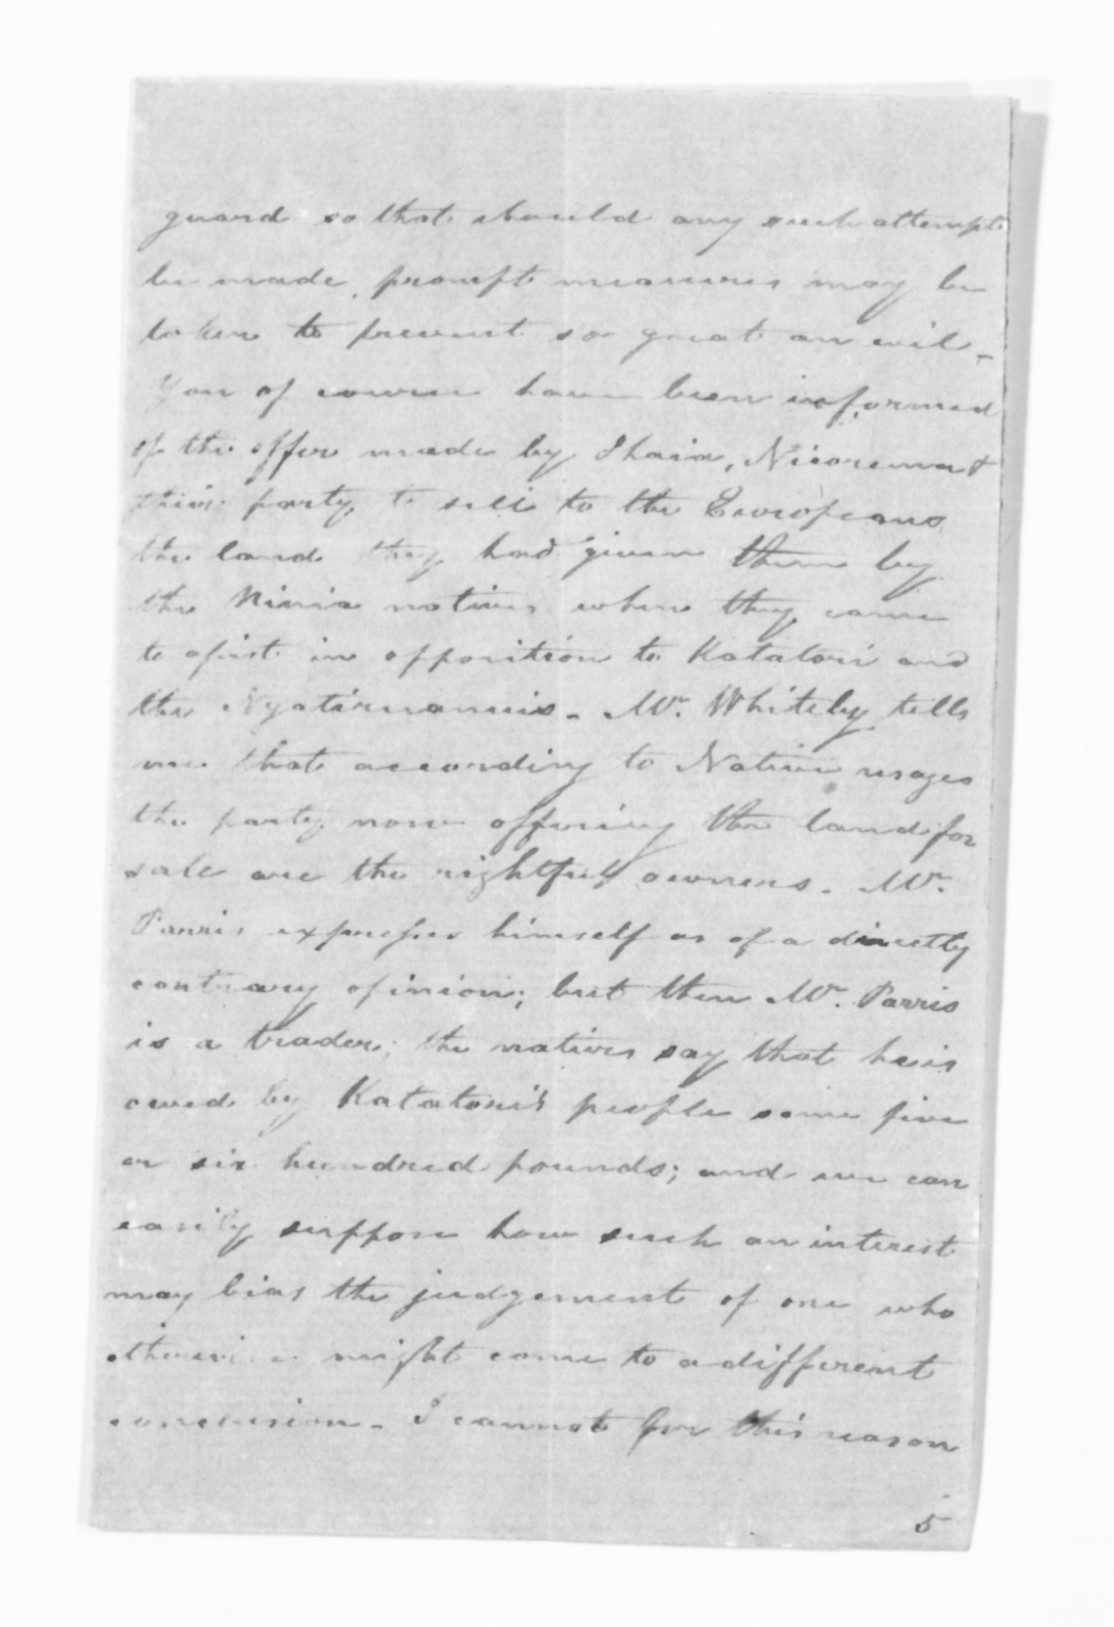 guard so that should any such attempt
be made, prompt measures may be
taken to prevent so great an evil -
You of course have been informed
of the offer made by Ihaia, Nicorema &
their party, to sell to the Europeans
the land they had given them by
the Ninia natives when they came
to assist in opposition to Katatori and
the Ngatiruanuis - Mr. Whiteley tells
me that according to Native usages
the party now offering the land for
sale are the rightful owners - Mr.
Parris expresses himself as of a directly
contrary opinion; but then Mr. Parris
is a trader; the natives say that he is
owed by Katatori's people some five
or six hundred pounds; and we can
easily suppose how such an interest
may bias the judgement of one who
otherwise might come to a different
conclusion - I cannot for this reason
5